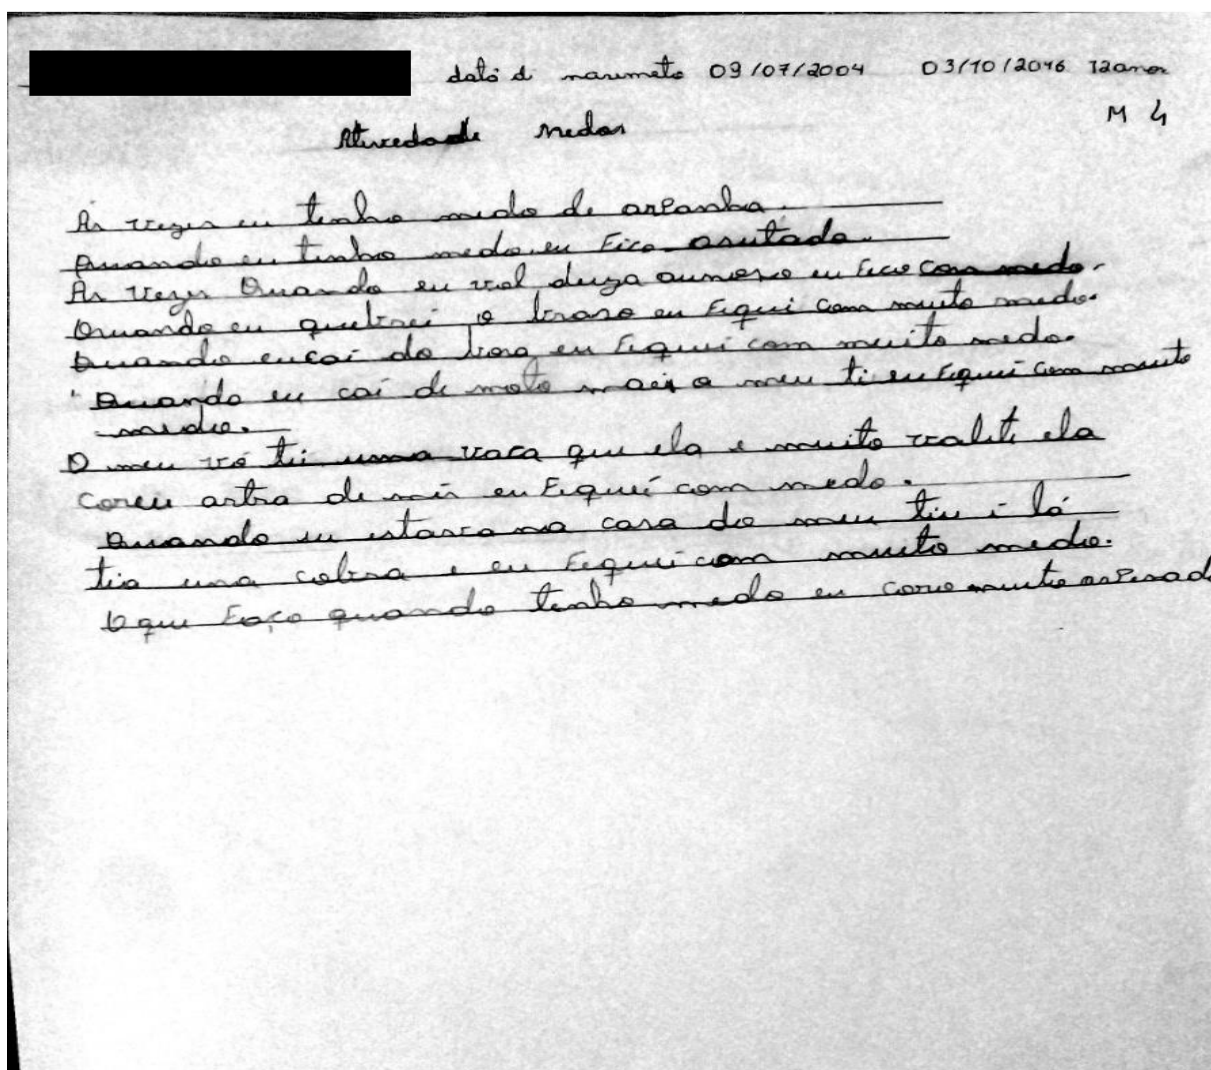 data di nasimeto 09/07/2004 03/10/2016 12 anos
M 4
Atividade medos
Às vezes eu tenho medo de aranha.
Quando eu tenho medo eu Fico asutada.
Às vezes Quando eu vol eu Fico com medo.
Quando eu quebrei o braso eu Fiquei com muito medo.
Quando eu cai do eu Fiquei com muito medo.
Quando eu cai de moto mais o meu ti eu Fiquei com muito
medo.
O meu vó tei uma vaca que ela e muito valiti ela
coreu artra de min eu Fiquei com medo.
Quando eu estava na casa do meu tiu i lá
tia una cobra e eu Fiquei com muito medo.
O que Faço quando tenho medo eu coro muito